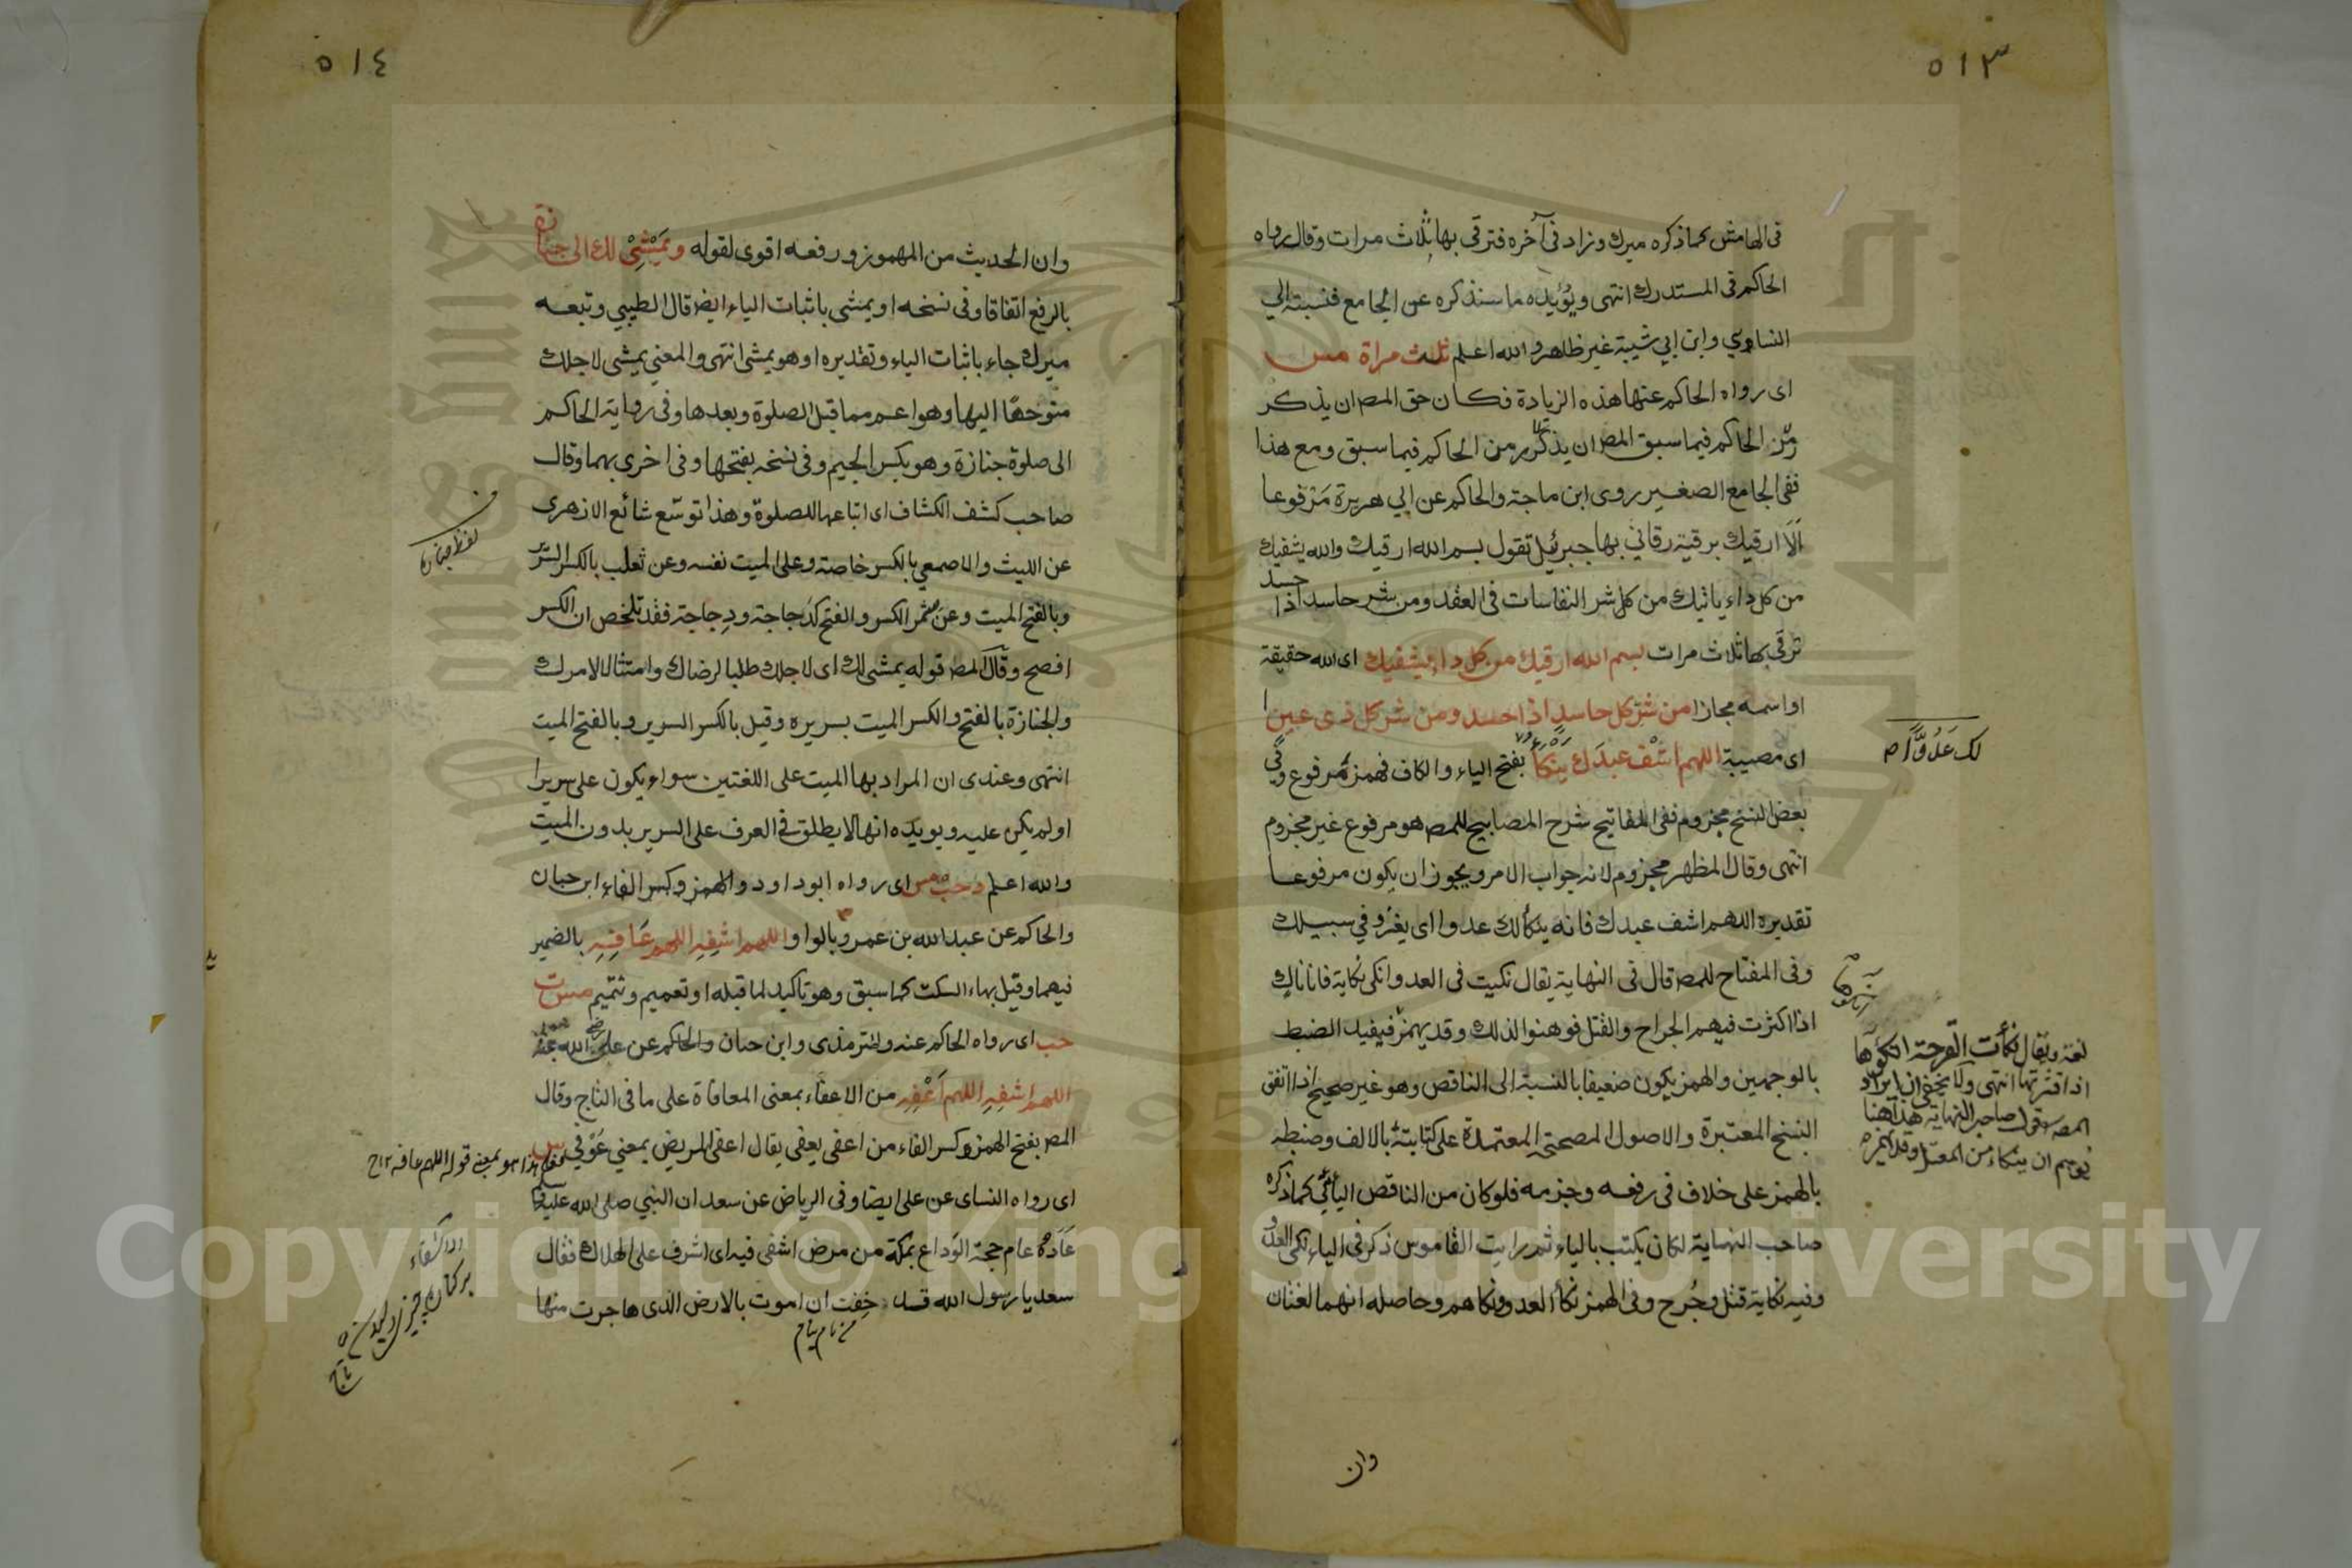 ٥١٣
في الهامش كما ذكره ميرك وزاد في آخره فترقى بها ثلاث مرات وقال رواه
الحاكم في المستدرك انتهى ويؤيده ما سنذكره عن الجامع فنسبته الي
النساوي وابن ابي شيبة غير ظاهر والله اعلم ثلث مراة مس
اى رواه الحاكم عنها هذه الزيادة فكان حق المص ان يذكر
من الحاكم فيما سبق المص ان يذكر من الحاكم فيما سبق ومع هذا
ففى الجامع الصغير روى ابن ماجة والحاكم عن ابي هريرة مرفوعا
الا ارقيك برقية رقاني بها جبرئيل تقول بسم الله ارقيك والله يشفيك
من كل داء ياتيك من كل شر النفاسات في العقد ومن شر حاسد اذا حسد
ترقى بها ثلاث مرات بسم الله ارقيك من كل داء يشفيك اى الله حقيقة
او اسمه مجازا من شر كل حاسد اذا حسد ومن شر كل ذى عين ا
اى مصيبة اللهم اشف عبدك ينكأ بفتح الياء والكاف فهمزة مرفوع وفي
لك عَدُوًّا م
بعض النسخ مجزوم ففى المفاتيح شرح المصابيح للمص هو مرفوع غير مجزوم
انتهى وقال المظهر مجزوم لانه جواب الامر ويجوز ان يكون مرفوعا
تقديره اللهم اشف عبدك فانه ينكأ لك عدوا اى يغزو في سبيلك
وفى المفتاح للمص قال فى النهاية يقال نكيت فى العدو انكى نكاية فانا ناك
اذا اكثرت فيهم الجراح والقتل فوهنوا لذلك وقد يهمز فيفيد الضبط
بالوجهين والهمز يكون ضعيفا بالنسبة الى الناقص وهو غير صحيح اذا اتفق
النسخ المعتبرة والاصول المصححة المعتمدة على كتابته بالالف وضبطه
بالهمز على خلاف فى رفعه وجزمه فلو كان من الناقص اليائي كما ذكره
صاحب النهاية لكان يكتب بالياء ثم رايت القاموس ذكر فى الياء نكى العدو
وفيه نكاية قتل وجُرح وفى الهمز نكأ العدو ونكاهم وحاصله انهما لغتان
لغة ويقال نكأت القرحة انكؤها
اذا قشرتها انتهى ولا يخفى ان ايراد
المص قول صاحب النهاية هذا هنا
يوهم ان ينكاء من المعتل
وان
٥١٤
وان الحديث من المهموز ورفعه اقوى لقوله ويَمْشِىْ لك الى جنازة
بالرفع اتفاقا وفى نسخه او يمشى باثبات الياء ايض قال الطيبي وتبعه
ميرك جاء باثبات الياء وتقديره او هو يمشى انتهى والمعني يمشى لاجلك
متوجها اليها وهو اعم مما قبل الصلوة وبعدها وفى رواية الحاكم
الى صلوة جنازة وهو بكسر الجيم وفى نسخه بفتحها وفى اخرى بهما وقال
صاحب كشف الكشاف اى اتباعها للصلوة وهذا توسّع شائع الازهرى
عن الليث والاصمعي بالكسر خاصة وعلى الميت نفسه وعن ثعلب بالكسر السرير
وبالفتح الميت وعن شمر الكسر والفتح كدَجاجة ودِجاجة فقد تلخص ان الكسر
افصح وقال المص قوله يمشى لك اى لاجلك طلبا لرضاك وامتثالا لامرك
والجنازة بالفتح والكسر الميت بسريره وقيل بالكسر السرير وبالفتح الميت
انتهى وعندى ان المراد بها الميت على اللغتين سواء يكون على سريرا
او لم يكن عليه ويويده انها لا يطلق في العرف على السرير بدون الميت
والله اعلم د حب مس اى رواه ابوداود والهمز وكسر الفاء ابن حبان
والحاكم عن عبد الله بن عمرو بالواو اللهم اشفِهِ اللهم عَافِهِ بالضمير
فيهما وقيل بهاء السكت كما سبق وهو تاكيد لما قبله او تعميم وتتميم مس ت
حب اى رواه الحاكم عنه والترمذى وابن حبان والحاكم عن على رضى الله عنه
اللهم اشفِهِ اللهم اَعْفِهِ من الاعفاء بمعنى المعافاة على ما فى التاج وقال
المص بفتح الهمز وكسر الفاء من اعفى يعفى يقال اعفى المريض بمعني عوفي س
هذا هو بمعنى قوله اللهم عافه
اى رواه النساى عن على ايضا وفى الرياض عن سعد ان النبي صلى الله عليه
عَادَهُ عام حجة الوَداع بمكة من مرض اشفى فيه اى اشرف على الهلاك فقال
سعد يا رسول الله قد خِفت ان اموت بالارض الذى هاجرت منها
Copyright © King Saud University